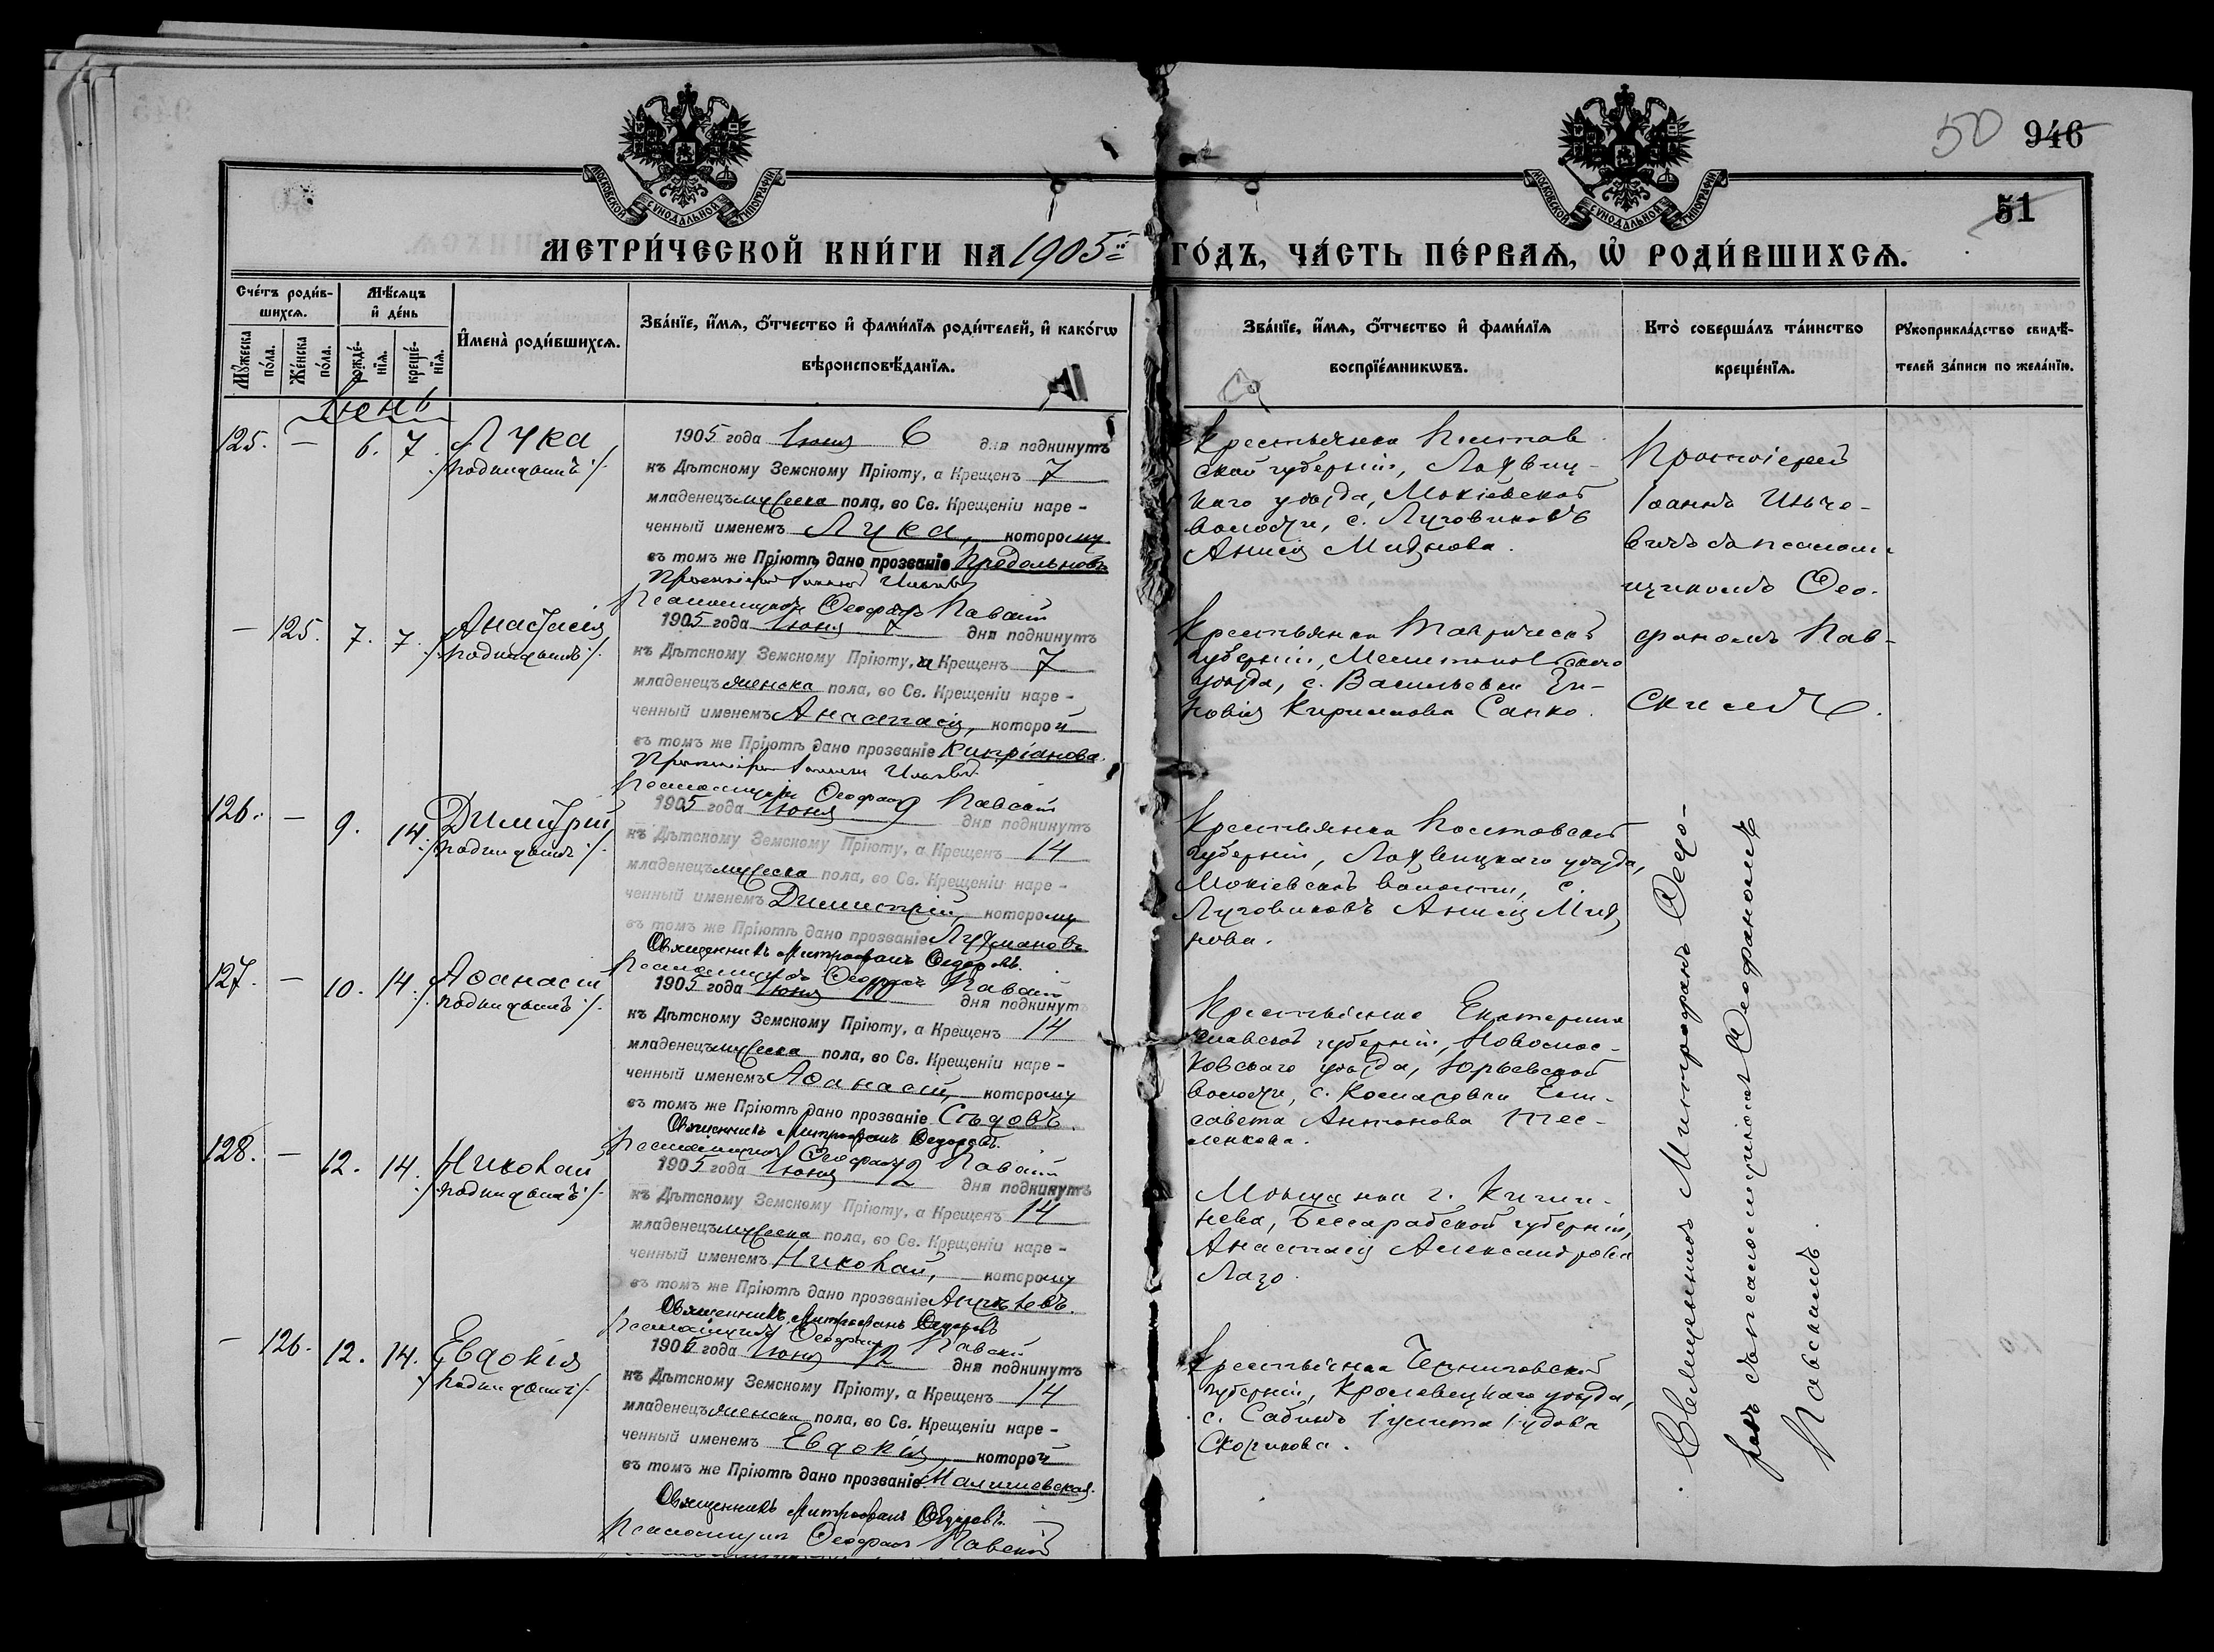 50 946
51
МОСКОВСКОЙ СУНОДАЛЬНОЙ ТИПОГРАФІИ
МОСКОВСКОЙ СУНОДАЛЬНОЙ ТИПОГРАФІИ
МЕТРИ́ЧЕСКОЙ КНИ́ГИ НА 1905й ГО́ДЪ, ЧА́СТЬ ПЕ́РВАѦ, Ѡ҆ РОДИ́ВШИХСѦ.
Сче́тъ роди́в-
шихсѧ.
Мѣ́сѧцъ
и҆ де́нь
Мꙋ́жеска
по́ла.
Же́нска
по́ла.
рожде́-
нїѧ.
креще́-
нїѧ.
И҆мена̀ роди́вшихсѧ.
Зва́нїе, и҆́мѧ, ѻ҆́тчество и҆ фами́лїѧ роди́телей, и҆ како́гѡ
вѣроисповѣ́данїѧ.
Зва́нїе, и҆́мѧ, ѻ҆́тчество и҆ фами́лїѧ
воспрїе́мникѡвъ.
Кто̀ соверша́лъ та́инство
креще́нїѧ.
Рꙋкоприкла́дство свидѣ́-
телей за́писи по жела́нїю.
Іюнь
125. — 6. 7. Лука
/: подкидышъ :/
1905 года Іюня 6 дня подкинутъ
къ Дѣтскому Земскому Пріюту, а Крещенъ 7
младенецъ мужеска пола, во Св. Крещеніи наре-
ченный именемъ Лука, которому
въ томъ же Пріютѣ дано прозваніе Предольновъ
Протоіерей Іоаннъ Ильичевъ
Псаломщикъ Ѳеофанъ Павскій
Крестьянка Полтав
ской губерніи, Лохвиц-
каго уѣзда, Мокіевской
волости, с. Луговиковъ
Анисія Михнова.
Протоіерей
Іоаннъ Ильче-
вичъ съ псалом-
щикомъ Ѳео-
фаномъ Пав-
скимъ.
— 125. 7. 7. Анастасія
/: подкидышъ :/
1905 года Іюня 7 дня подкинутъ
къ Дѣтскому Земскому Пріюту, а Крещенъ 7
младенецъ женска пола, во Св. Крещеніи наре-
ченный именемъ Анастасія, которой
въ томъ же Пріютѣ дано прозваніе Кипріанова.
Протоіерей Іоаннъ
Псаломщикъ Ѳеофанъ Павскій
Крестьянка Таврическ
губерніи, Мелитопольскаго
уѣзда, с. Васильевки Зи-
новія Кириллова Санко.
126. — 9. 14. Димитрій
/: подкидышъ :/
1905 года Іюня 9 дня подкинутъ
къ Дѣтскому Земскому Пріюту, а Крещенъ 14
младенецъ мужеска пола, во Св. Крещеніи наре-
ченный именемъ Димитрій, которому
въ томъ же Пріютѣ дано прозваніе Лухмановъ
Священникъ Митрофанъ Ѳедоровъ.
Псаломщикъ Ѳеофанъ Павскій
Крестьянка Полтавской
губерніи, Лохвицкаго уѣзда,
Мокіевской волости, с.
Луговиковъ Анисія Мих
нова.
127. — 10. 14. Аѳанасій
/: подкидышъ :/
1905 года Іюня 10 дня подкинутъ
къ Дѣтскому Земскому Пріюту, а Крещенъ 14
младенецъ мужеска пола, во Св. Крещеніи наре-
ченный именемъ Аѳанасій, которому
въ томъ же Пріютѣ дано прозваніе Сѣдовъ.
Священникъ Митрофанъ Ѳедоровъ.
Псаломщикъ Ѳеофанъ Павскій
Крестьянка Екатерино
славской губерніи, Новомос-
ковскаго уѣзда, Юрьевской
волости, с. Ели-
савета Антонова Тес-
ленкова.
128. — 12. 14. Николай
/: подкидышъ :/
1905 года Іюня 12 дня подкинутъ
къ Дѣтскому Земскому Пріюту, а Крещенъ 14
младенецъ мужеска пола, во Св. Крещеніи наре-
ченный именемъ Николай, которому
въ томъ же Пріютѣ дано прозваніе
Священникъ Митрофанъ Ѳедоровъ
Псаломщикъ Ѳеофанъ Павскій
Мѣщанка г. Киши-
нева, Бессарабской губерніи,
Анастасія Александрова
Лазо.
— 126. 12. 14. Евдокія
/: подкидышъ :/
1905 года Іюня 12 дня подкинутъ
къ Дѣтскому Земскому Пріюту, а Крещенъ 14
младенецъ женска пола, во Св. Крещеніи наре-
ченный именемъ Евдокія, которой
въ томъ же Пріютѣ дано прозваніе
Священникъ Митрофанъ Ѳедоровъ.
Псаломщикъ Ѳеофанъ Павскій
Крестьянка Черниговской
губерніи, Кролевецкаго уѣзда,
с. Іулита Іудова
Скорикова.
Священникъ Митрофанъ Ѳедо-
ровъ съ псаломщикомъ Ѳеофаномъ
Павскимъ.